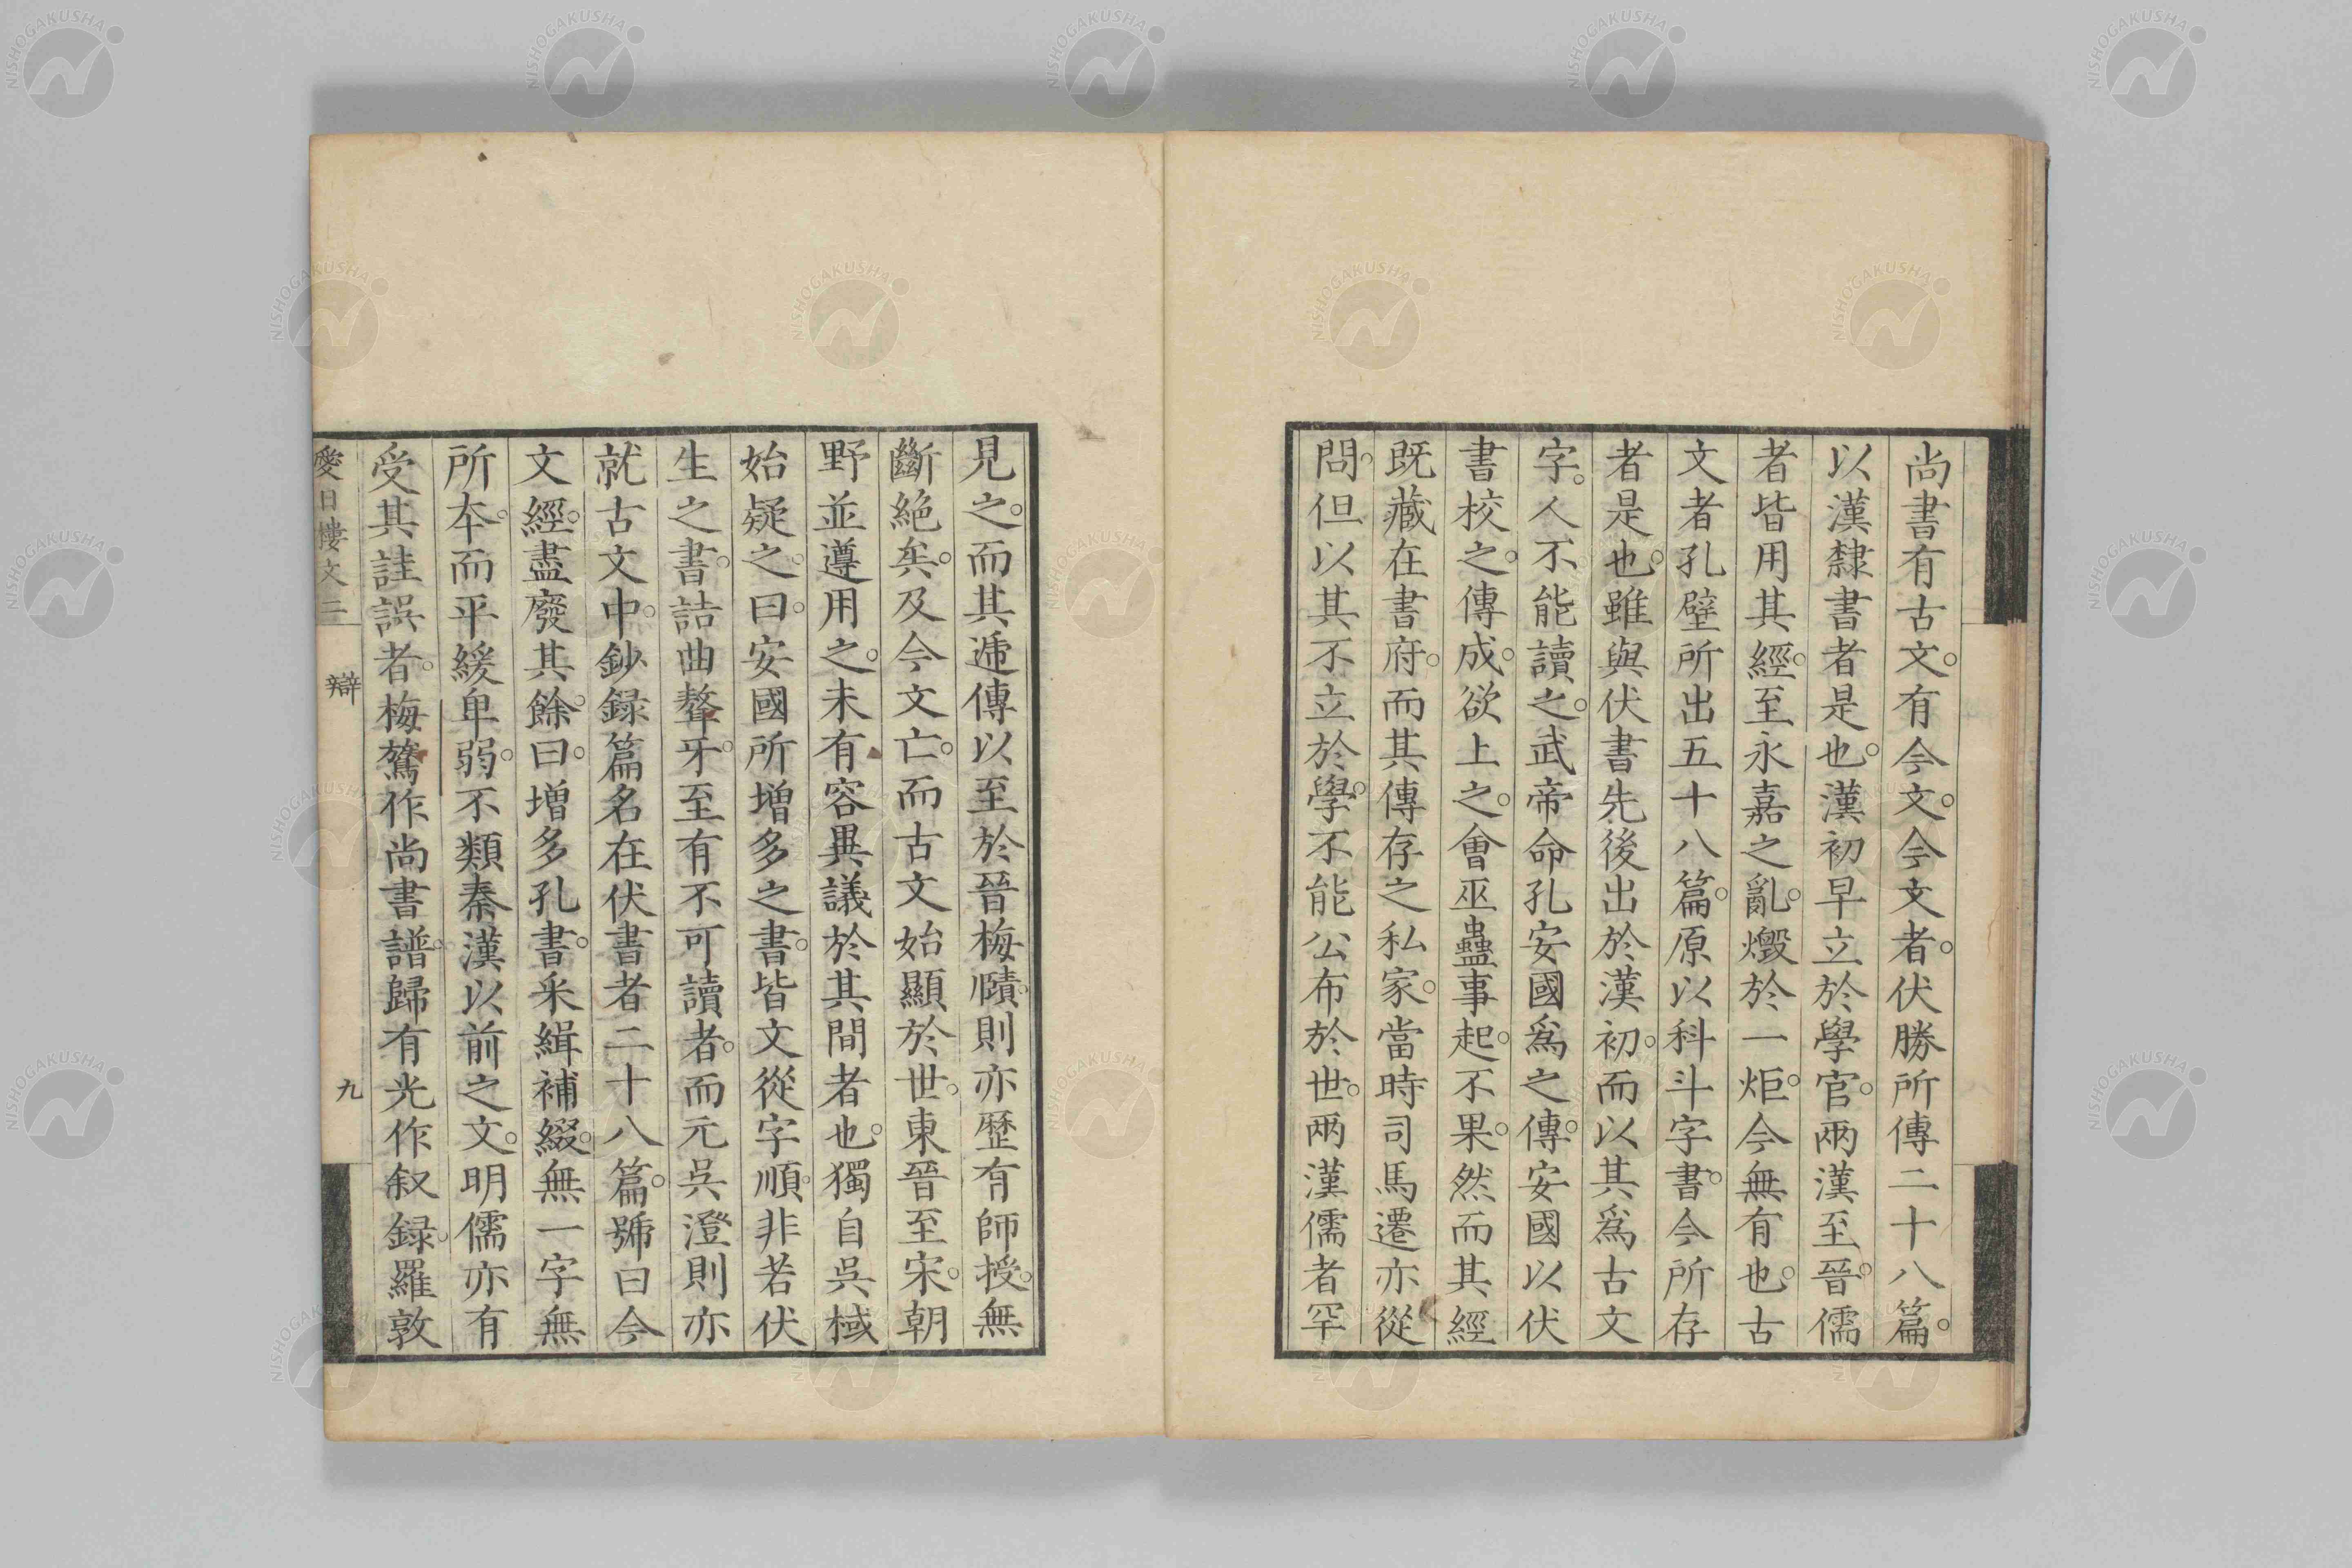 尚書有古文。有今文。今文者。伏勝所傳二十八篇。
以漢隸書者是也。漢初早立於學官。兩漢至晉。儒
者皆用其經。至永嘉之亂。燬於一炬。今無有也。古
文者孔壁所出五十八篇。原以科斗字書。今所存
者是也。雖與伏書先後出於漢初。而以其爲古文
字。人不能讀之。武帝命孔安國爲之傳。安國以伏
書校之。傳成。欲上之。會巫蠱事起。不果。然而其經
既藏在書府。而其傳存之私家。當時司馬遷亦從
問。但以其不立於學。不能公布於世。兩漢儒者罕
見之。而其遞傳以至於晉梅賾。則亦歷有師授。無
斷絕矣。及今文亡。而古文始顯於世。東晉至宋。朝
野並遵用之。未有容異議於其間者也。獨自吳棫
始疑之。曰。安國所增多之書。皆文從字順。非若伏
生之書。詰曲聱牙。至有不可讀者。而元吳澄則亦
就古文中。鈔録篇名在伏書者二十八篇。號曰今
文經。盡廢其餘。曰。增多孔書。采緝補綴。無一字無
所本。而平緩卑弱。不類秦漢以前之文。明儒亦有
受其註誤者。梅鷟作尚書譜。歸有光作叙録。羅敦
愛日樓文二 辯 九
NISHOGAKUSHA